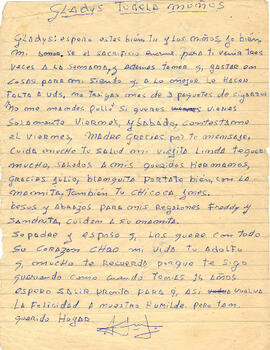 GLADYS TUDELA MUÑOS
GLAdys: espero estes bien tu y Los niños yo bien,
Mi amor, se el sacrificio enorme, para ti venir tres
veces A la semana, y Ademas tomar y, gastar en
cosas para mi siendo q, A lo mejor le hacen
falta A uds, no traigas mas de 3 paquetes de cigarros
No me mandes pollo Si quieres vienes
Solamente Viernes, y Sabado, contestame
el viernes, Madre Gracias por tu mensaje,
Cuida mucho tu salud mi viejita Linda te quiero
mucho, Saludos A mis queridos Hermanos,
Gracias julio, blanquita portate bien, con la
mamita, tambien tu Chicoca ynes.
besos y Abrazos para mis Regalones Freddy y
Sandrita, cuiden A su mamita.
Su padre y esposo q, Los quere con todo
Su corazon CHAO mi vida tu Adolfo
q, mucho te Recuerda porque te sigo
queriendo como cuando tenias 14 años
espero SALIR pronto para q, Asi vuelva
La Felicidad A nuestro Humilde, pero tan
querido Hogar.